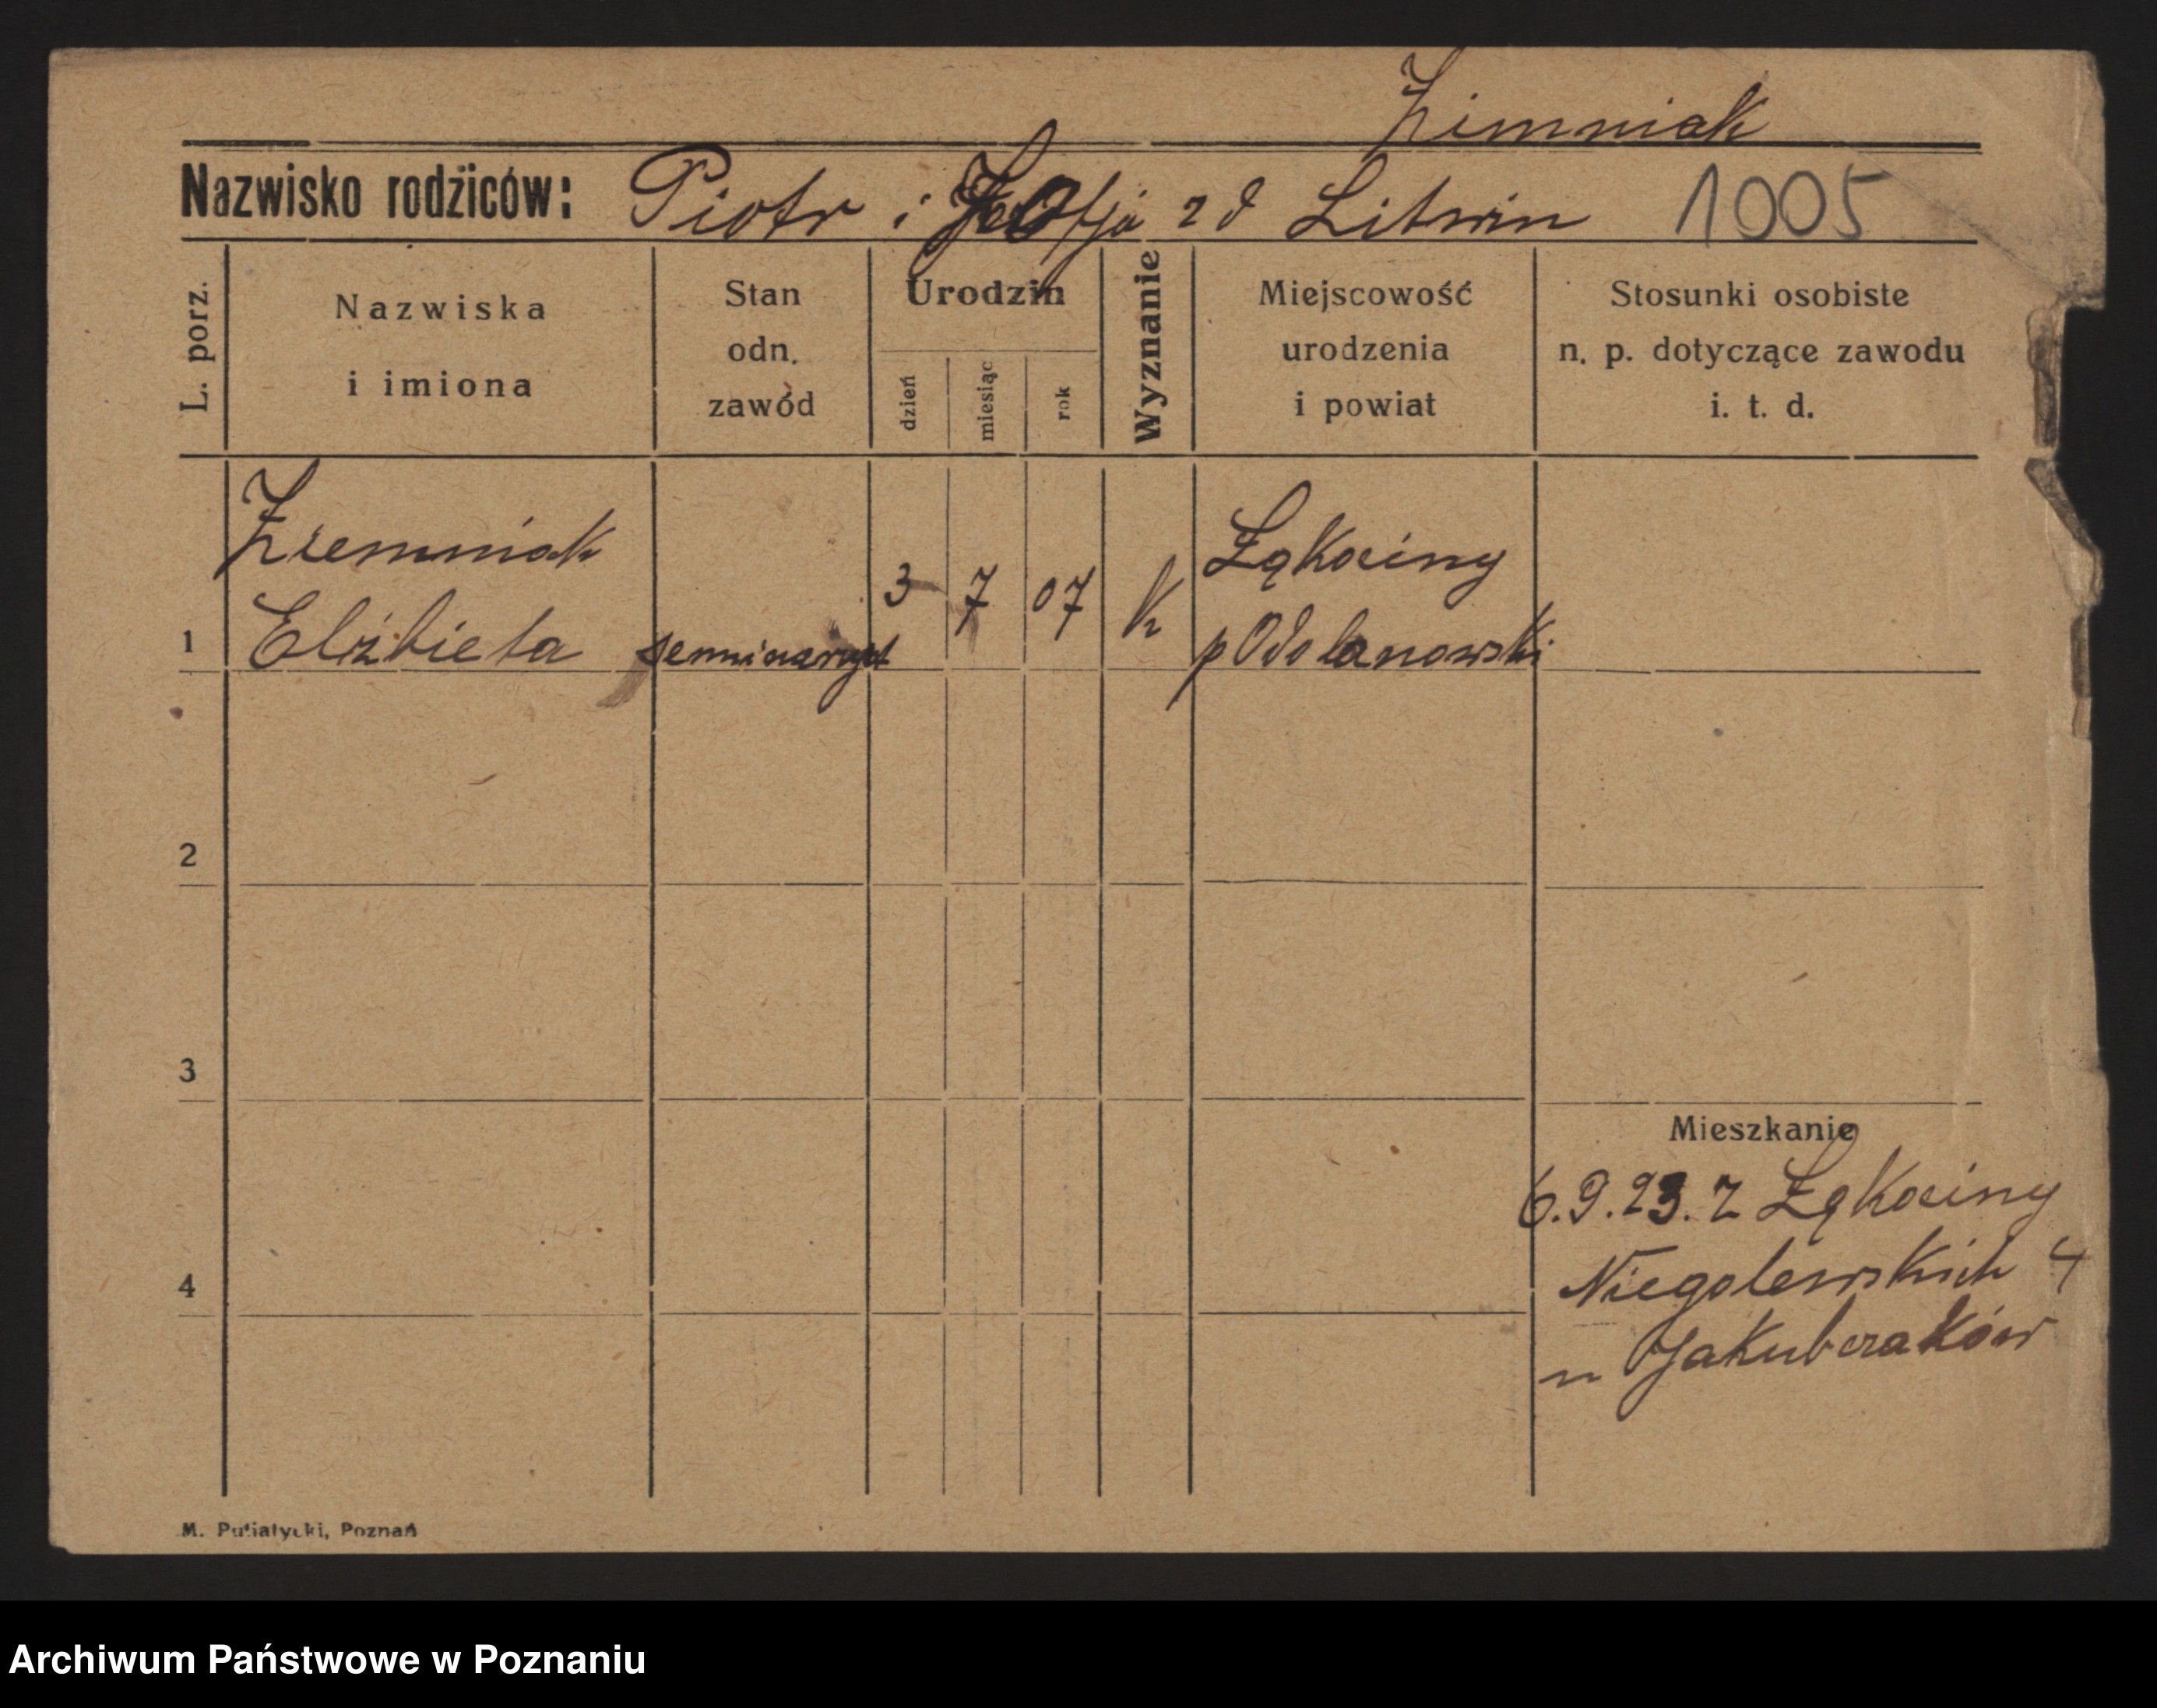 Zimniak
Nazwisko rodziców: Piotr i Zofja zd Litwin 1005
L. porz.
Nazwiska
i imiona
Stan
odn.
zawód
Urodzin
dzień
miesiąc
rok
Wyznanie
Miejscowość
urodzenia
i powiat
Stosunki osobiste
n. p. dotyczące zawodu
i. t. d.
Ziemniak
Elżbieta
3 7 07 K
Łąkociny
pOdolanowski
1
2
3
4
Mieszkanie
6.9.23. z Łąkociny
Niegolewskich 4
u Jakubczaków
M. Putiatycki, Poznań
Archiwum Państwowe w Poznaniu